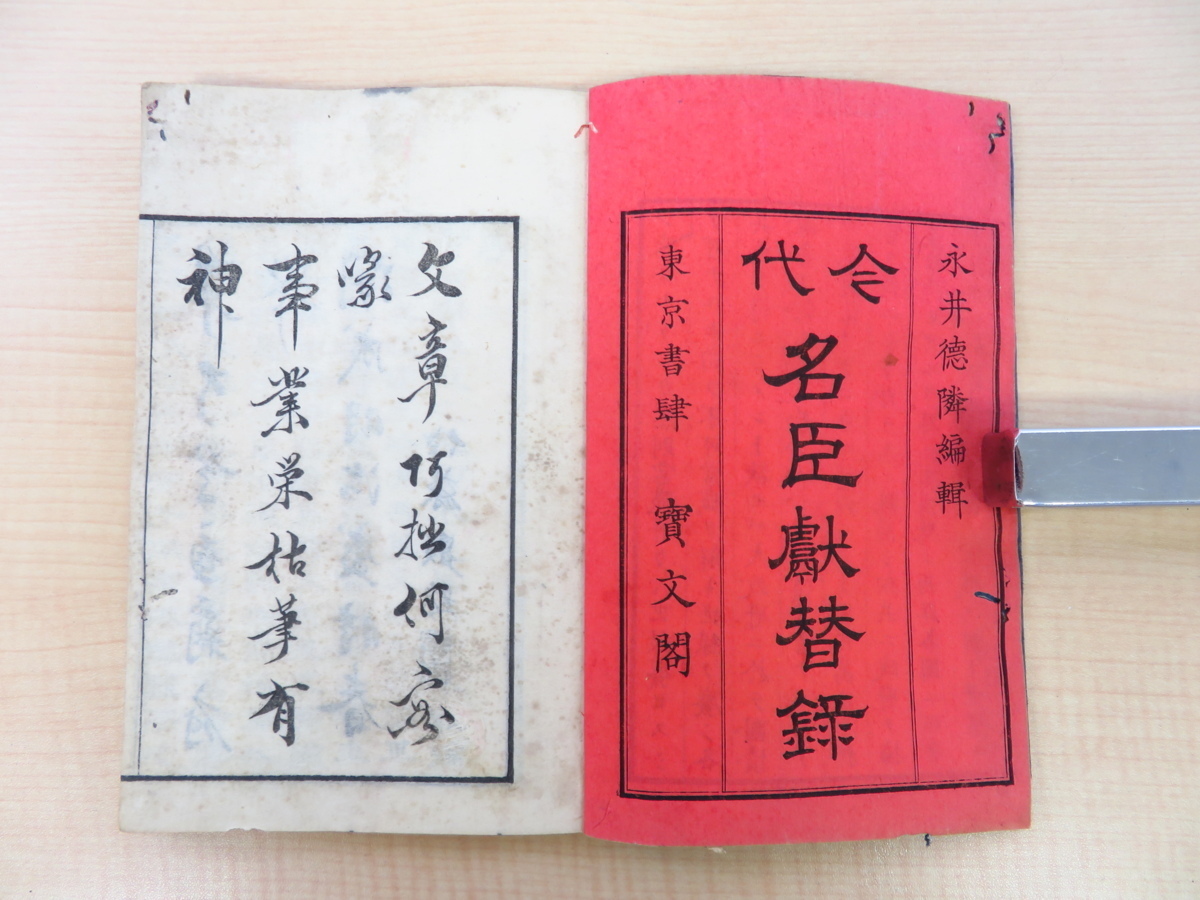 永井德隣編輯
今代
名臣獻替錄
東京書肆 寶文閣
文章巧拙何容
喙
事業栄枯筆有
神